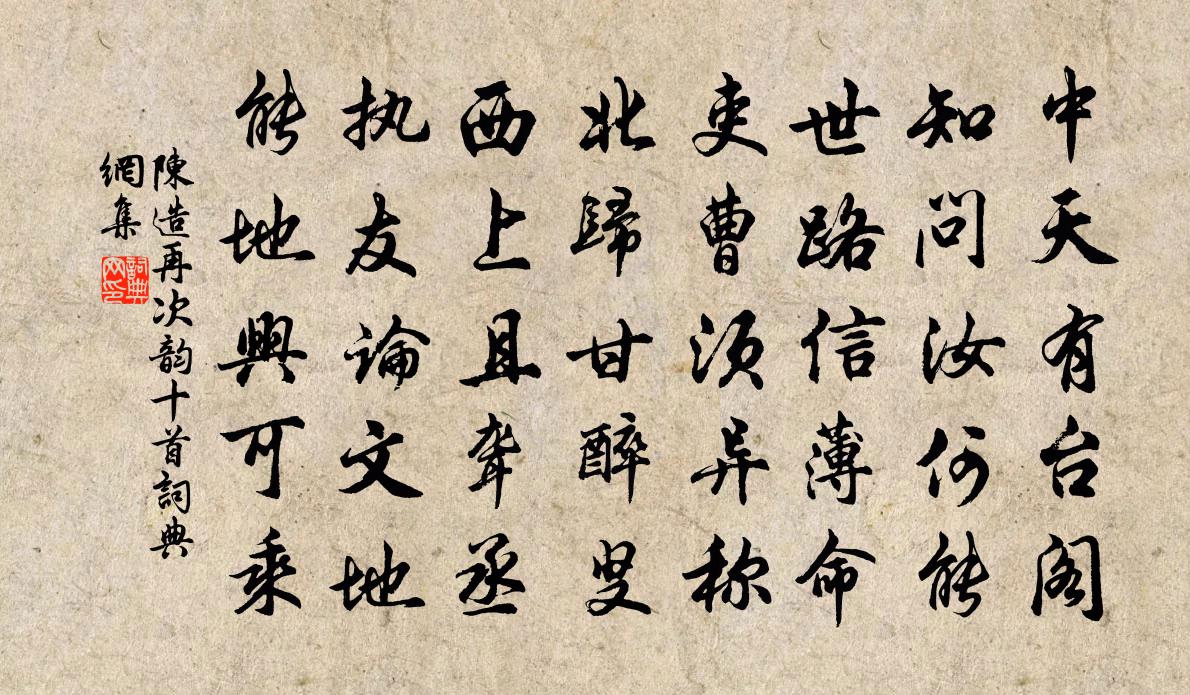 中天有台阁
知问汝何能
世路信薄命
吏曹须异称
北歸甘醉叟
西上且聋丞
执友论文地
能地興可乘
陳造再次韵十首詞典
網集
詞典
网印